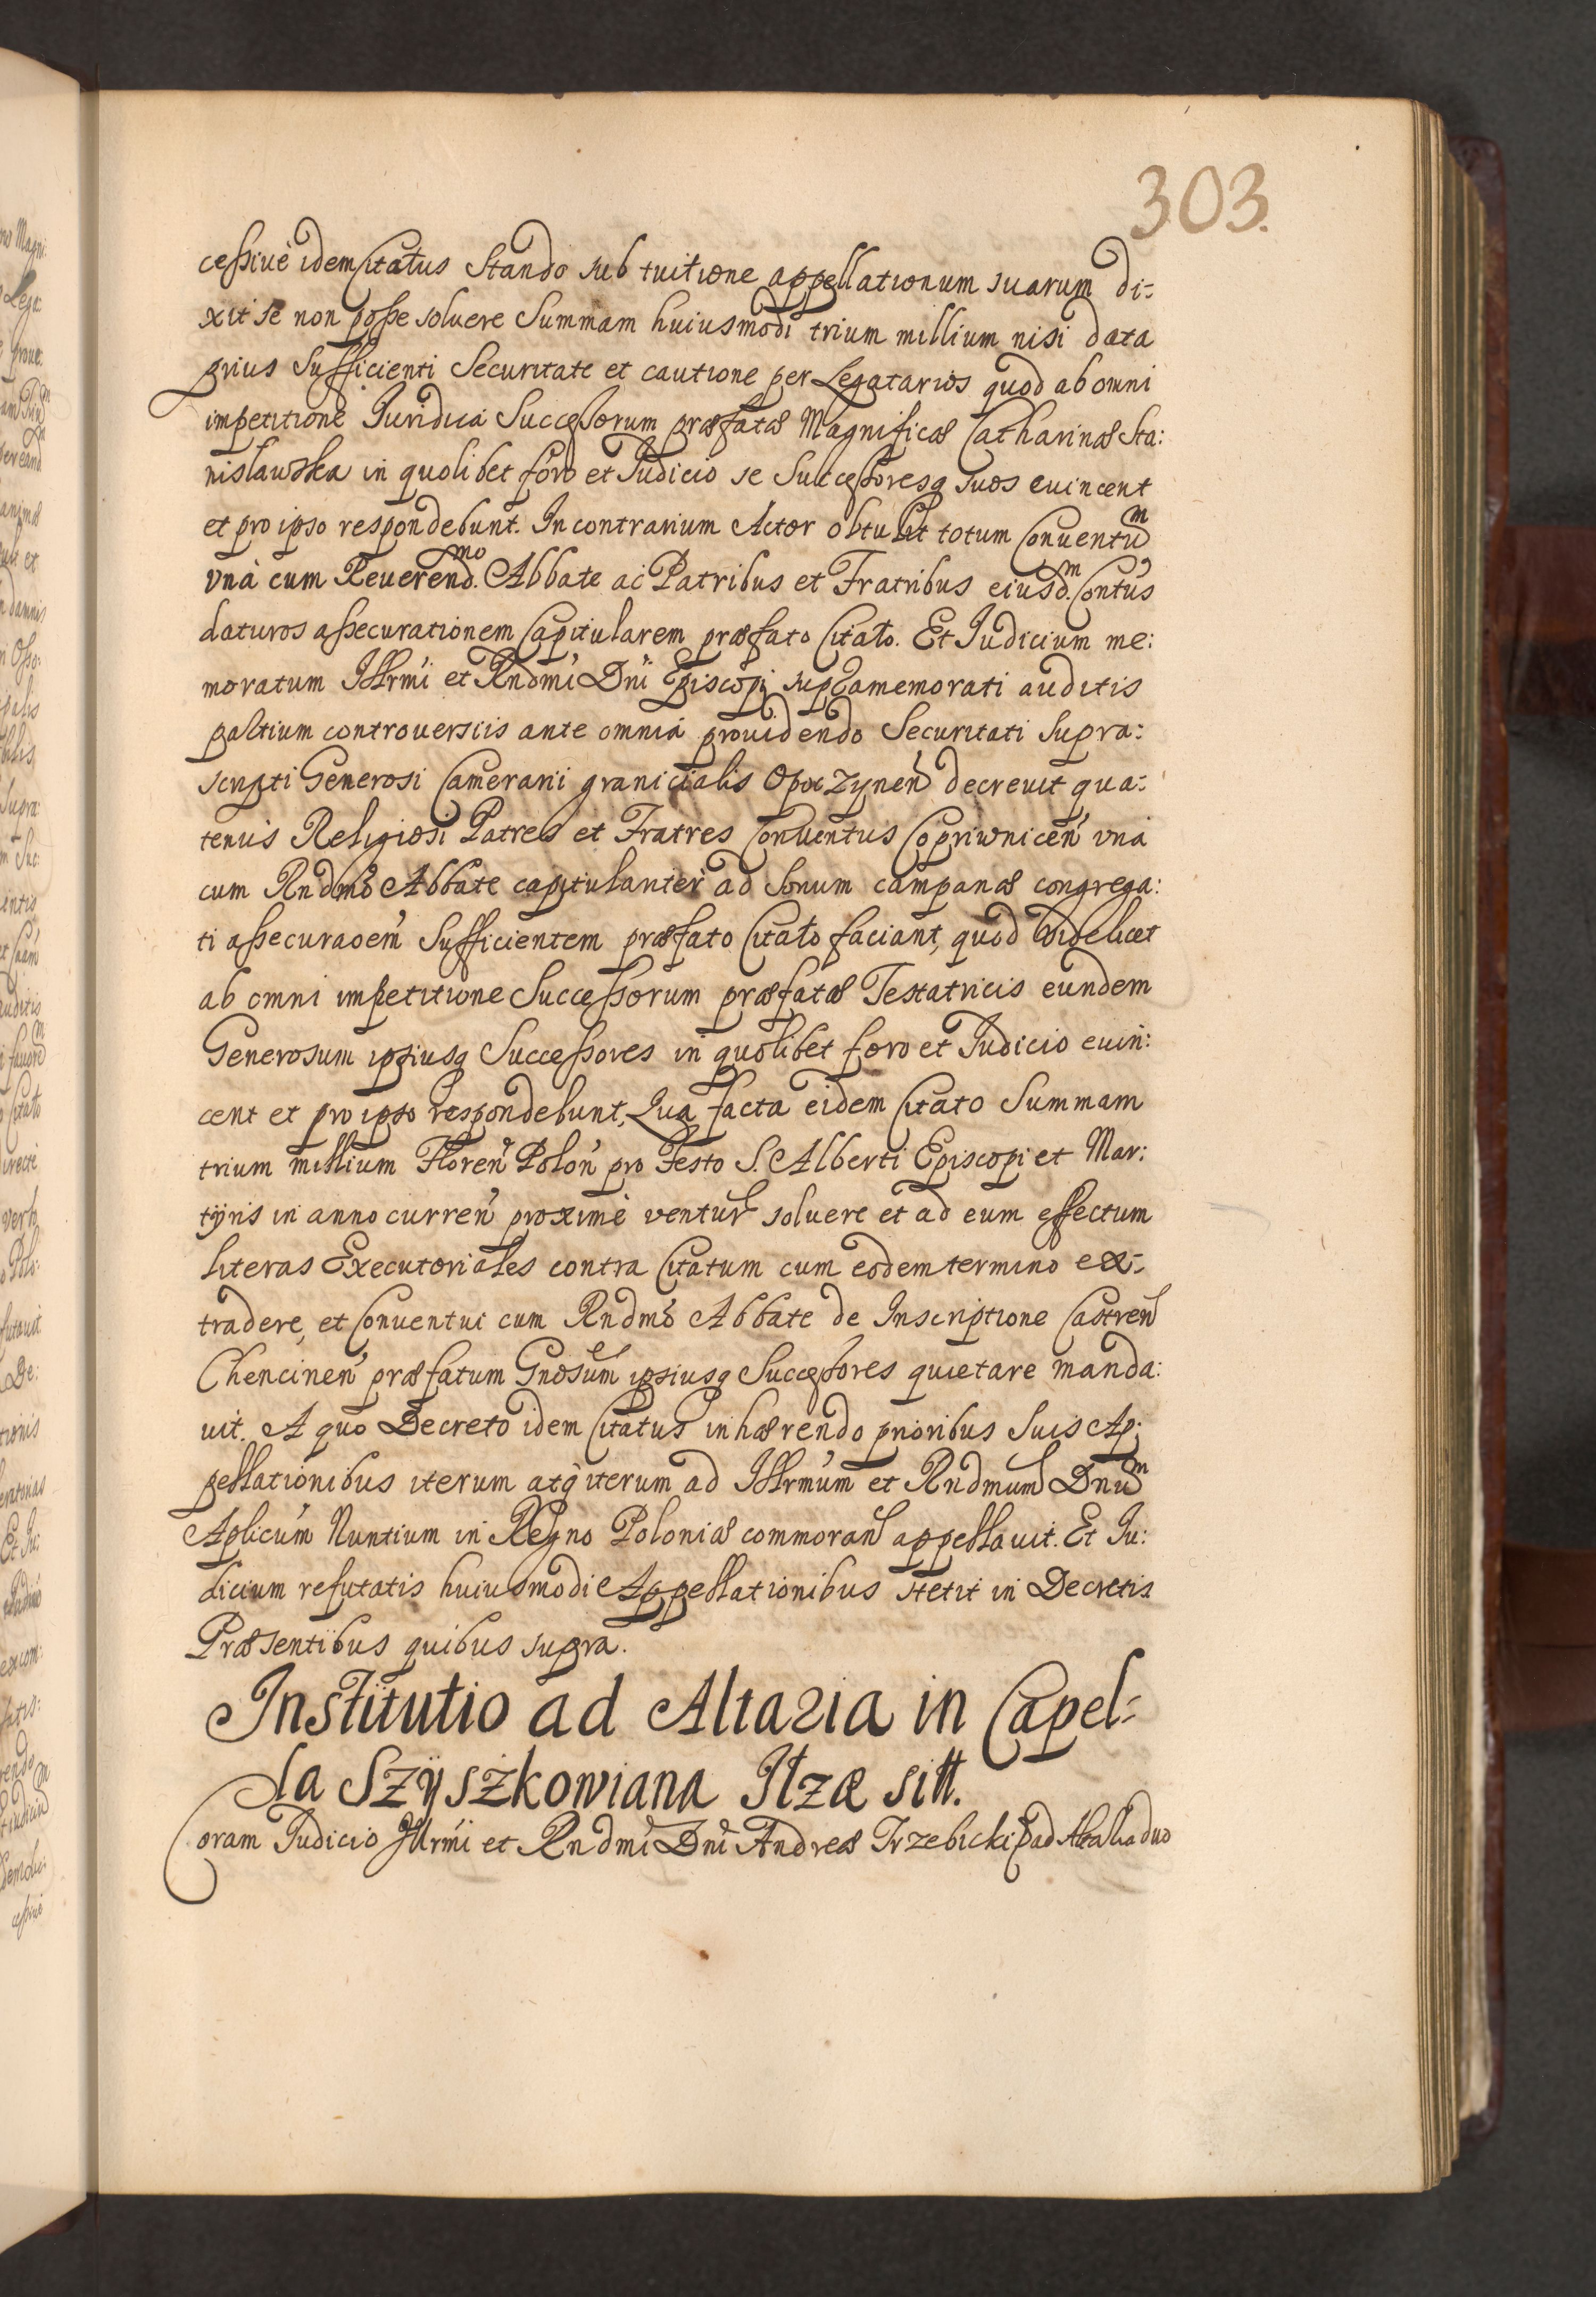 303.
cessiuè idem Citatus Stando sub tuitione appellationum suarum di:
xit se non posse soluere Summam huiusmodi trium millium nisi data
prius Sufficienti Securitate et cautione per Legatarios quod ab omni
impetitione Juridica Successorum præfatæ Magnificæ Catharinæ Sta:
nislawska in quolibet foro et Judicio se Successoresq suos euincent
et pro ipso respondebunt. In contrarium Actor obtulit totum Conuentũm
vnà cum Reuerend.mo Abbate ac Patribus et Fratribus eiusd.m Contûs
daturos assecurationem Capitularem præfato Citato. Et Judicium me:
moratum Illrmi et Rndmi Dni Episcopi supramemorati auditis
paltium controuersiis ante omnia prouidendo Securitati Supra:
scripti Generosi Camerarii granicialis Opoczynen decreuit qua:
tenus Religiosi Patres et Fratres Conuentus Copriwnicen vnà
cum Rndmo Abbate capitulariter ad sonum campanæ congrega:
ti assecuraoem Sufficientem præfato Citato faciant, quod videlicet
ab omni impetitione Successorum præfatæ Testatricis eundem
Generosum ipsiusq Successores in quolibet foro et Judicio euin:
cent et pro ipso respondebunt, Qua facta eidem Citato Summam
trium millium Floren Polon pro Festo S. Alberti Episcopi et Mar:
tyris in anno curren proximè ventur soluere et ad eum effectum
literas Executoriales contra Citatum cum eodem termino ex:
tradere, et Conuentui cum Rndmo Abbate de Inscriptione Castren
Chencinen præfatum Gnosum ipsiusq Successores quietare manda:
uit. A quo Decreto idem Citatus inhærendo prioribus Suis Ap:
pellationibus iterum atq iterum ad Illrmum et Rndmum Dnum
Aplicum Nuntium in Regno Poloniæ commoran appellauit. Et Ju:
dicium refutatis huiusmodi Appellationibus stetit in Decretis
Præsentibus quibus supra.
Institutio ad Altaria in Capel:
la Szÿszkowiana Ilzæ sitt.
Coram Judicio Illrmi et Rndmi Dni Andreæ Trzebicki ad Altalia duo